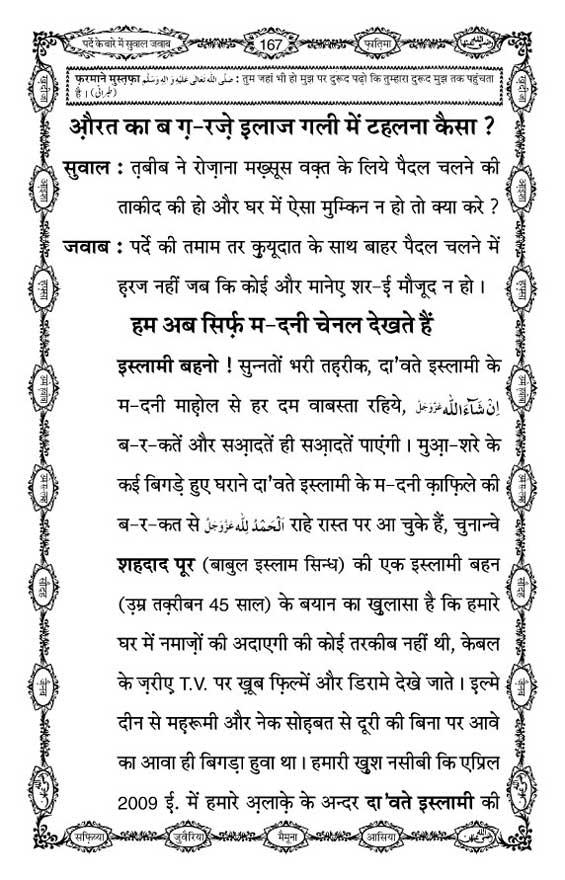 पर्दे के बारे में सुवाल जवाब
167
फ़ातिमा
फ़रमाने मुस्तफ़ा صَلَّى اللّٰهُ تَعَالٰى عَلَيْهِ وَاٰلِهٖ وَسَلَّم : तुम जहां भी हो मुझ पर दुरूद पढ़ो कि तुम्हारा दुरूद मुझ तक पहुंचता
है । (طبرانی)
औ़रत का ब ग़-रज़े इ़लाज गली में टहलना कैसा ?
सुवाल : त़बीब ने रोज़ाना मख़्सूस वक़्त के लिये पैदल चलने की
ताकीद की हो और घर में ऐसा मुम्किन न हो तो क्या करे ?
जवाब : पर्दे की तमाम तर क़ुयूदात के साथ बाहर पैदल चलने में
ह़रज नहीं जब कि कोई और मानेए शर-ई़ मौजूद न हो ।
हम अब सिर्फ़ म-दनी चेनल देखते हैं
इस्लामी बहनो ! सुन्नतों भरी तह़रीक, दा'वते इस्लामी के
म-दनी माह़ोल से हर दम वाबस्ता रहिये, اِنْ شَآءَاللّٰه عَزَّوَجَلَّ
ब-र-कतें और सआ़दतें ही सआ़दतें पाएंगी । मुआ़-शरे के
कई बिगड़े हुए घराने दा'वते इस्लामी के म-दनी क़ाफ़िले की
ब-र-कत से اَلْحَمْدُ لِلّٰه عَزَّوَجَلَّ राहे रास्त पर आ चुके हैं, चुनान्चे
शहदाद पूर (बाबुल इस्लाम सिन्ध) की एक इस्लामी बहन
(उ़म्र तक़्रीबन 45 साल) के बयान का ख़ुलासा है कि हमारे
घर में नमाज़ों की अदाएगी की कोई तरकीब नहीं थी, केबल
के ज़रीए़ T.V. पर ख़ूब फ़िल्में और डिरामे देखे जाते । इ़ल्मे
दीन से महरूमी और नेक सोह़बत से दूरी की बिना पर आवे
का आवा ही बिगड़ा हुवा था । हमारी ख़ुश नसीबी कि एप्रिल
2009 ई. में हमारे अ़लाक़े के अन्दर दा'वते इस्लामी की
सफ़िय्या
जुवैरिया
मैमूना
आसिया